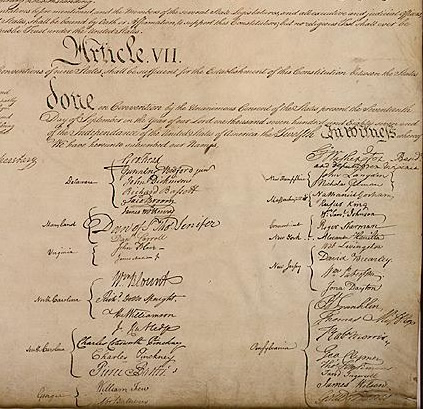 the Members of the several State Legislatures, and all executive and judicial Officers,
States, shall be bound by Oath or Affirmation, to support this Constitution; but no religious Test shall ever be
public Trust under the United States.
Article. VII.
Conventions of nine States, shall be sufficient for the Establishment of this Constitution between the States
done in Convention by the Unanimous Consent of the States present the Seventeenth
Day of September in the Year of our Lord one thousand seven hundred and Eighty seven and
of the Independance of the United States of America the Twelfth In Witness whereof
We have hereunto subscribed our Names,
Delaware
Geo: Read
Gunning Bedford jun
John Dickinson
Richard Bassett
Jaco: Broom
Maryland
James McHenry
Dan of St Thos Jenifer
Danl Carroll
Virginia
John Blair
North Carolina
Wm Blount
Richd Dobbs Spaight
Hu Williamson
South Carolina
J. Rutledge
Charles Cotesworth Pinckney
Charles Pinckney
Pierce Butler
Georgia
William Few
Abr Baldwin
Go Washington
and deputy from Virginia
New Hampshire
John Langdon
Nicholas Gilman
Massachusetts
Nathaniel Gorham
Rufus King
Connecticut
Wm Saml Johnson
Roger Sherman
New York
Alexander Hamilton
New Jersey
Wil: Livingston
David Brearley
Wm Paterson
Jona: Dayton
Pensylvania
B Franklin
Thomas Mifflin
Robt Morris
Geo. Clymer
Thos FitzSimons
Jared Ingersoll
James Wilson
Gouv Morris